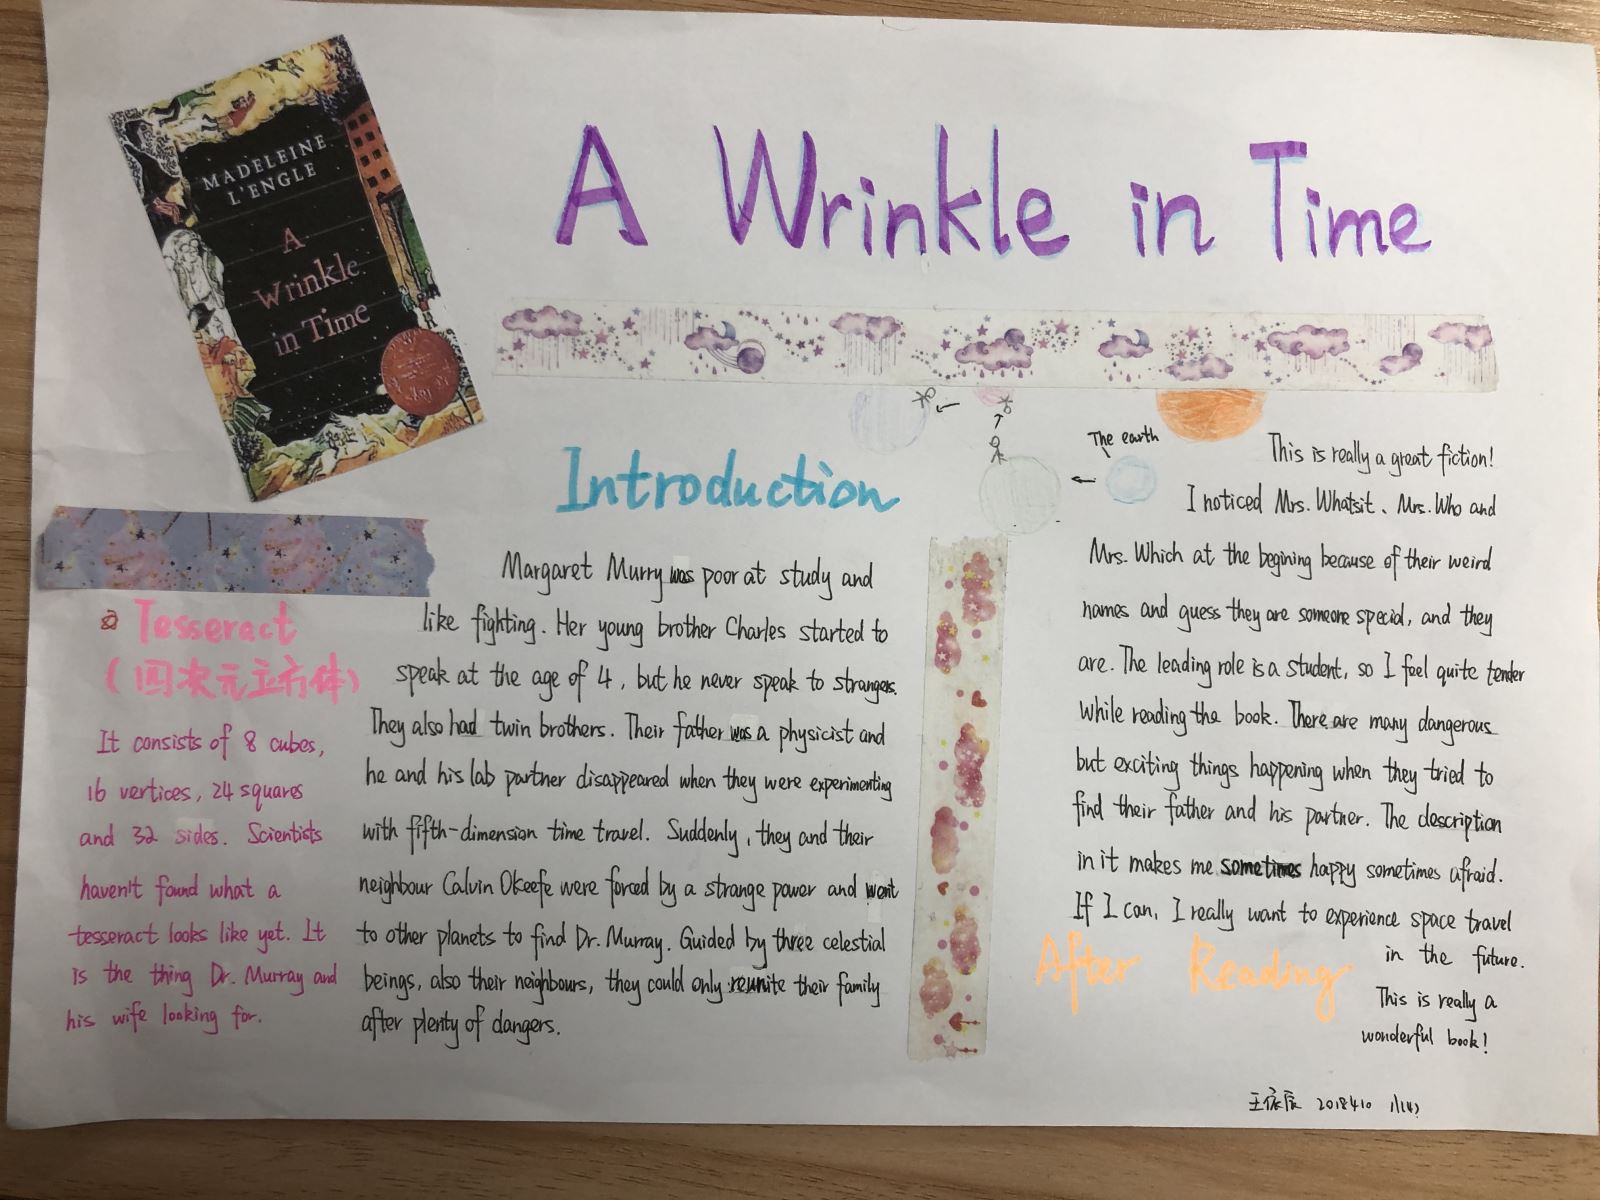 MADELEINE
L'ENGLE
A
Wrinkle
in Time
A Wrinkle in Time
Introduction
Margaret Murry was poor at study and
like fighting. Her young brother Charles started to
speak at the age of 4, but he never speak to strangers.
They also had twin brothers. Their father was a physicist and
he and his lab partner disappeared when they were experimenting
with fifth-dimension time travel. Suddenly, they and their
neighbour Calvin Okeefe were forced by a strange power and went
to other planets to find Dr. Murray. Guided by three celestial
beings, also their neighbours, they could only reunite their family
after plenty of dangers.
Tesseract
(四次元立方体)
It consists of 8 cubes,
16 vertices, 24 squares
and 32 sides. Scientists
haven't found what a
tesseract looks like yet. It
is the thing Dr. Murray and
his wife looking for.
The earth
This is really a great fiction!
I noticed Mrs. Whatsit、Mrs. Who and
Mrs. Which at the begining because of their weird
names and guess they are someone special, and they
are. The leading role is a student, so I feel quite tender
while reading the book. There are many dangerous
but exciting things happening when they tried to
find their father and his partner. The description
in it makes me sometimes happy sometimes afraid.
If I can, I really want to experience space travel
in the future.
This is really a
wonderful book!
After Reading
2018410